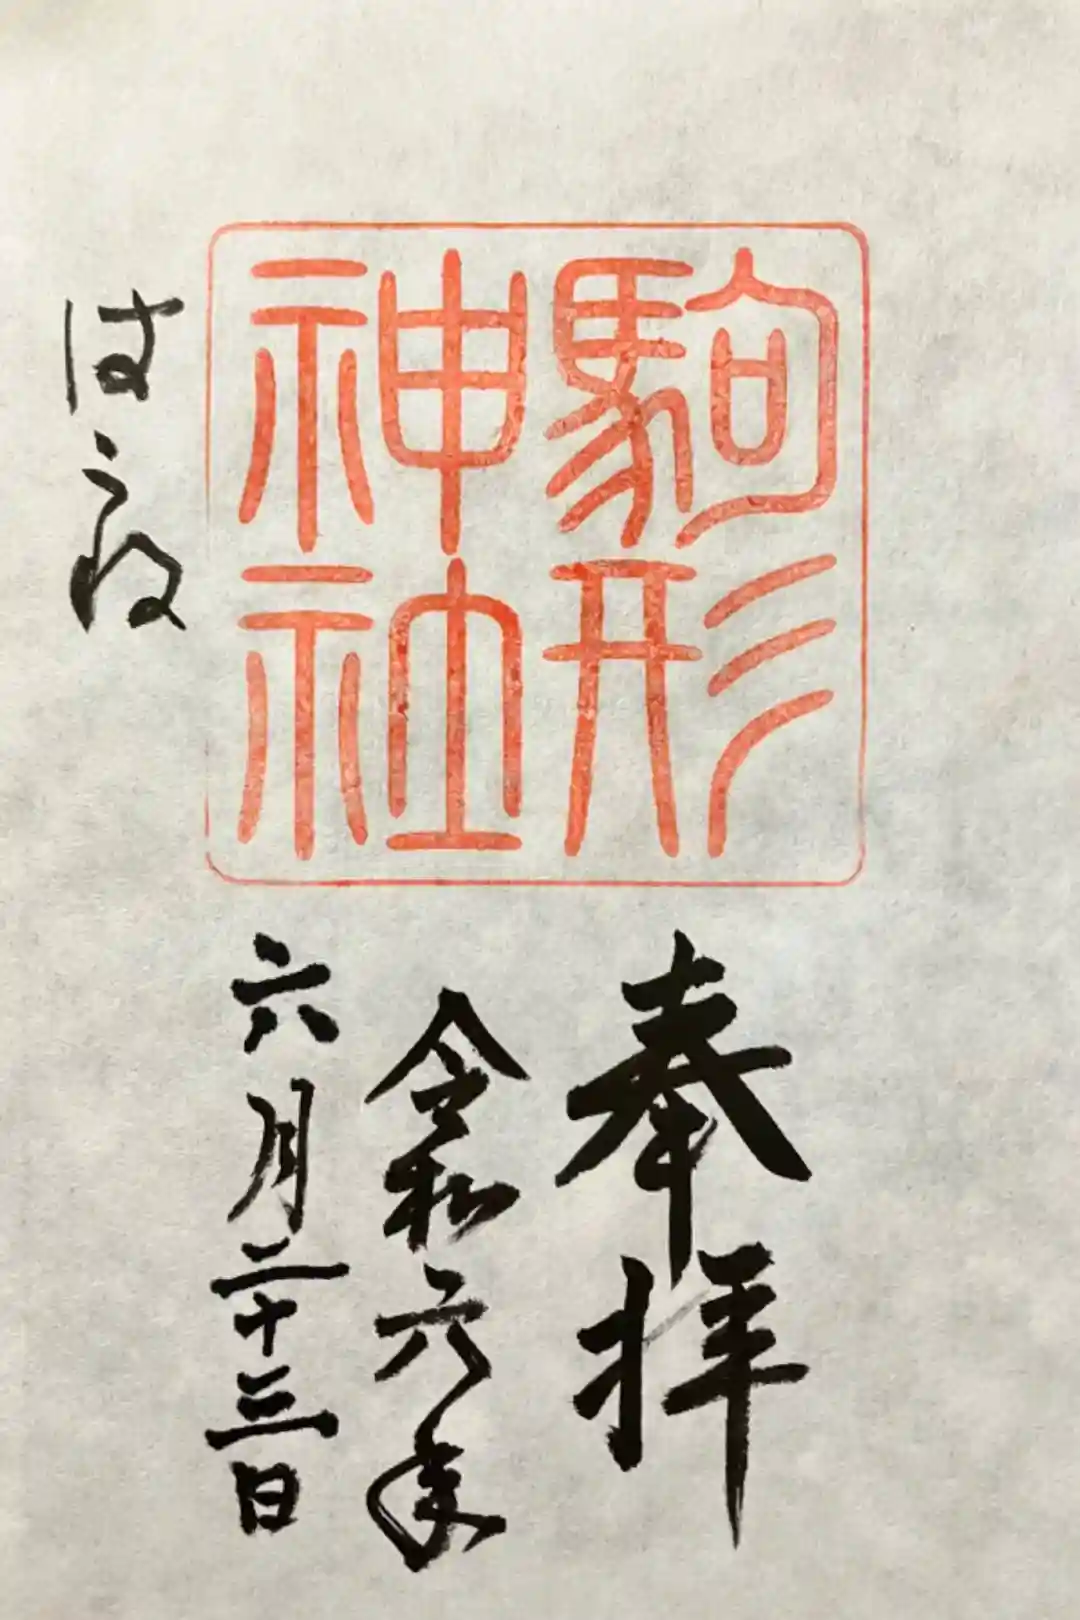 駒形
神社
奉拝
令和六年
六月二十三日